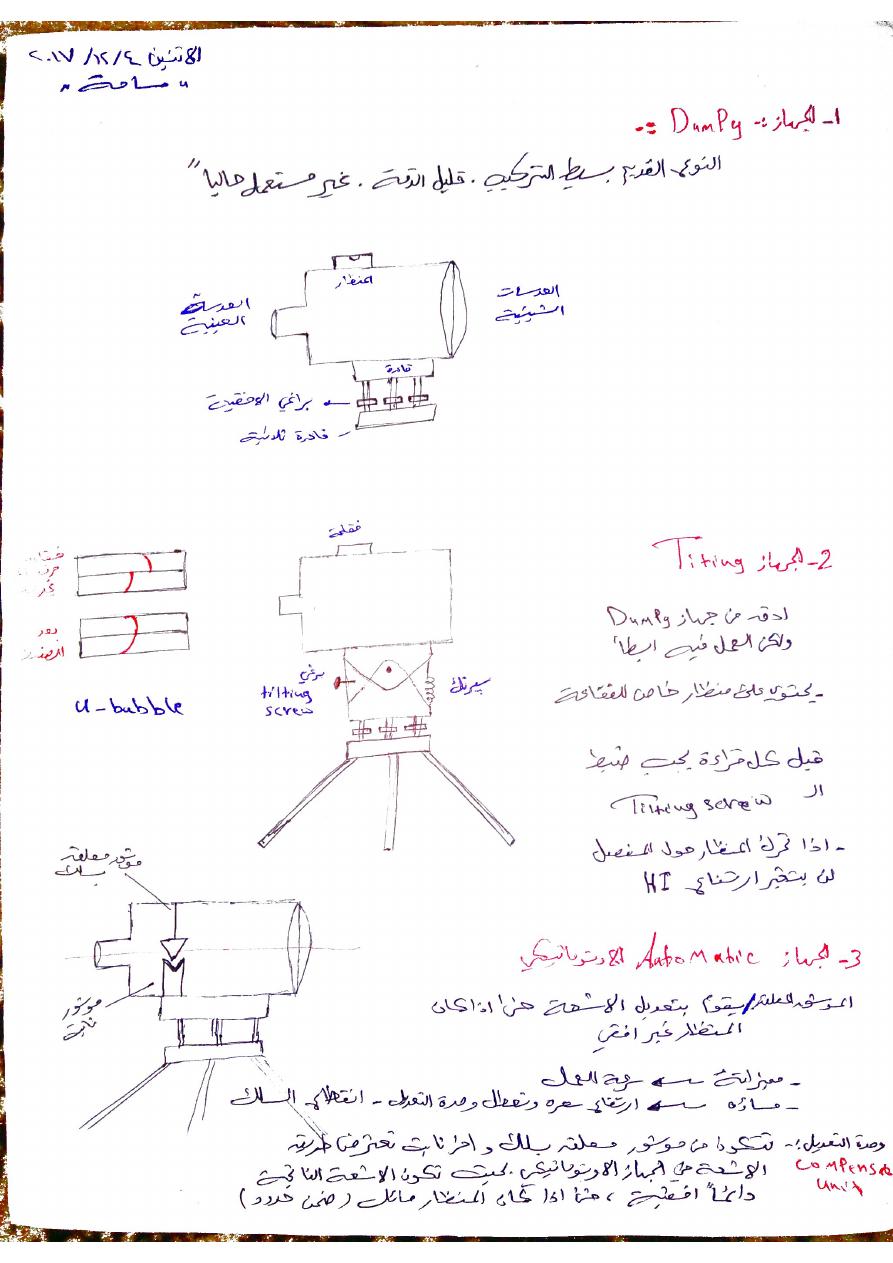 الاثنين ٢٠١٧/١٢/٤
"مساحة"
1- الجهاز :- DumPy :-
النوع القديم بسيط التركيب . قليل الدقة . غير مستعمل حاليا"
المنظار
العدسات
الشيئية
العدسة
العينية
قاعدة
براغي الافقية
قاعدة ثلاثية
فقاعة
2- الجهاز Titing
ادق من جهاز DumPy
ولكن العمل فيه ابطأ
بعد
u-bubble
برغي
tilting
screw
سبرنك
- يحتوي على منظار خاص للفقاعة
قبل كل قراءة يجب ضبط
الـ Tilting screw
- اذا تحرك المنظار حول المفصل
لن يتغير ارتفاع HI
موشور معلق
بسلك
موشور
ثابت
3- الجهاز AutoMatic الاوتوماتيكي
الموشور المعلق يقوم بتعديل الاشعة حتى اذا كان
المنظار غير افقي
- ميزاته ← سرعة العمل
- مساوئه ← ارتفاع سعره وتعطل وحدة التعديل - انقطاع السلك
وحدة التعديل :- تتكون من موشور معلق بسلك و اخر ثابت تعترض طريق
COMPENSATE
UNIT
الاشعة في الجهاز الاوتوماتيكي بحيث تكون الاشعة الناتجة
دائماً افقية ، حتى اذا كان المنظار مائل (ضمن حدود)